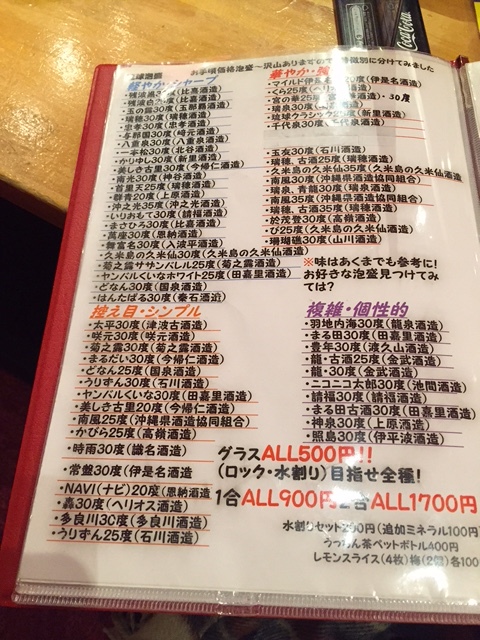 Coca-Cola
琉球泡盛 お手頃価格泡盛~沢山ありますので、特徴別に分けてみました
軽やか・シャープ
・残波黒30度(比嘉酒造)
・残波白25度(比嘉酒造)
・玉の露30度(玉那覇酒造)
・瑞穂30度(瑞穂酒造)
・忠孝30度(忠孝酒造)
・与那国30度(崎元酒造)
・八重泉30度(八重泉酒造)
・一本松30度(北谷酒造)
・かりゆし30度(新里酒造)
・美しき古里30度(今帰仁酒造)
・南光30度(神谷酒造)
・首里天25度(瑞穂酒造)
・群青20度(上原酒造)
・沖之光35度(沖之光酒造)
・いりおもて30度(請福酒造)
・まさひろ30度(比嘉酒造)
・萬座30度(恩納酒造)
・舞富名30度(入波平酒造)
・久米島の久米仙30度(久米島の久米仙酒造)
・菊之露サザンバレル25度(菊之露酒造)
・ヤンバルくいなホワイト25度(田嘉里酒造)
・どなん30度(国泉酒造)
・はんたばる30度(泰石酒造)
控え目・シンプル
・太平30度(津波古酒造)
・咲元30度(咲元酒造)
・菊之露30度(菊之露酒造)
・まるだい30度(今帰仁酒造)
・どなん25度(国泉酒造)
・うりずん30度(石川酒造)
・ヤンバルくいな30度(田嘉里酒造)
・美しき古里20度(今帰仁酒造)
・南風25度(沖縄県酒造協同組合)
・かびら25度(高嶺酒造)
・時雨30度(識名酒造)
・常盤30度(伊是名酒造)
・NAVI(ナビ)20度(恩納酒造
・轟30度(ヘリオス酒造)
・多良川30度(多良川酒造)
・うりずん25度(石川酒造)
華やか・
・マイルド伊是名 度(伊是名酒造)
・くら25度(ヘリオス酒造)
・宮の華25度 ・30度
・瑞泉30度
・琉球クラシック25度(新里酒造)
・千代泉30度(千代泉酒造)
・玉友30度(石川酒造)
・瑞穂、古酒25度(瑞穂酒造)
・久米島の久米仙35度(久米島の久米仙酒造
・南風30度(沖縄県酒造協同組合)
・瑞泉、青龍30度(瑞泉酒造)
・南風35度(沖縄県酒造協同組合)
・瑞穂、古酒35度(瑞穂酒造)
・於茂登30度(高嶺酒造)
・び25度(久米島の久米仙酒造)
・珊瑚礁30度(山川酒造)
※味はあくまでも参考に!
お好きな泡盛見つけてみ
ては?
複雑・個性的
・羽地内海30度(龍泉酒造)
・まる田30度(田嘉里酒造)
・豊年30度(渡久山酒造)
・龍・古酒25度(金武酒造)
・龍・30度(金武酒造)
・ニコニコ太郎30度(池間酒造)
・請福30度(請福酒造)
・まる田古酒30度(田嘉里酒造)
・神泉30度(上原酒造)
・照島30度(伊平波酒造)
グラスALL500円!!
(ロック・水割り)目指せ全種!
1合ALL900円 2合ALL1700円
水割りセット200円(追加ミネラル100円)
うっちん茶ペットボトル400円
レモンスライス(4枚)梅(2個)各100